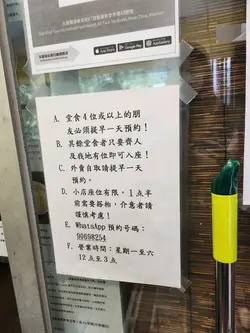 App Store
Google Play
AppGallery
A. 堂食4位或以上的朋
友必須提早一天預約！
B. 其餘堂食者只要齊人
及我地有位即可入座！
C. 外賣自取請提早一天
預約。
D. 小店座位有限，1點半
前需要搭枱，介意者請
謹慎考慮！
E. WhatsApp預約号碼：
90698254
F. 營業時間：星期一至六
12點至3點